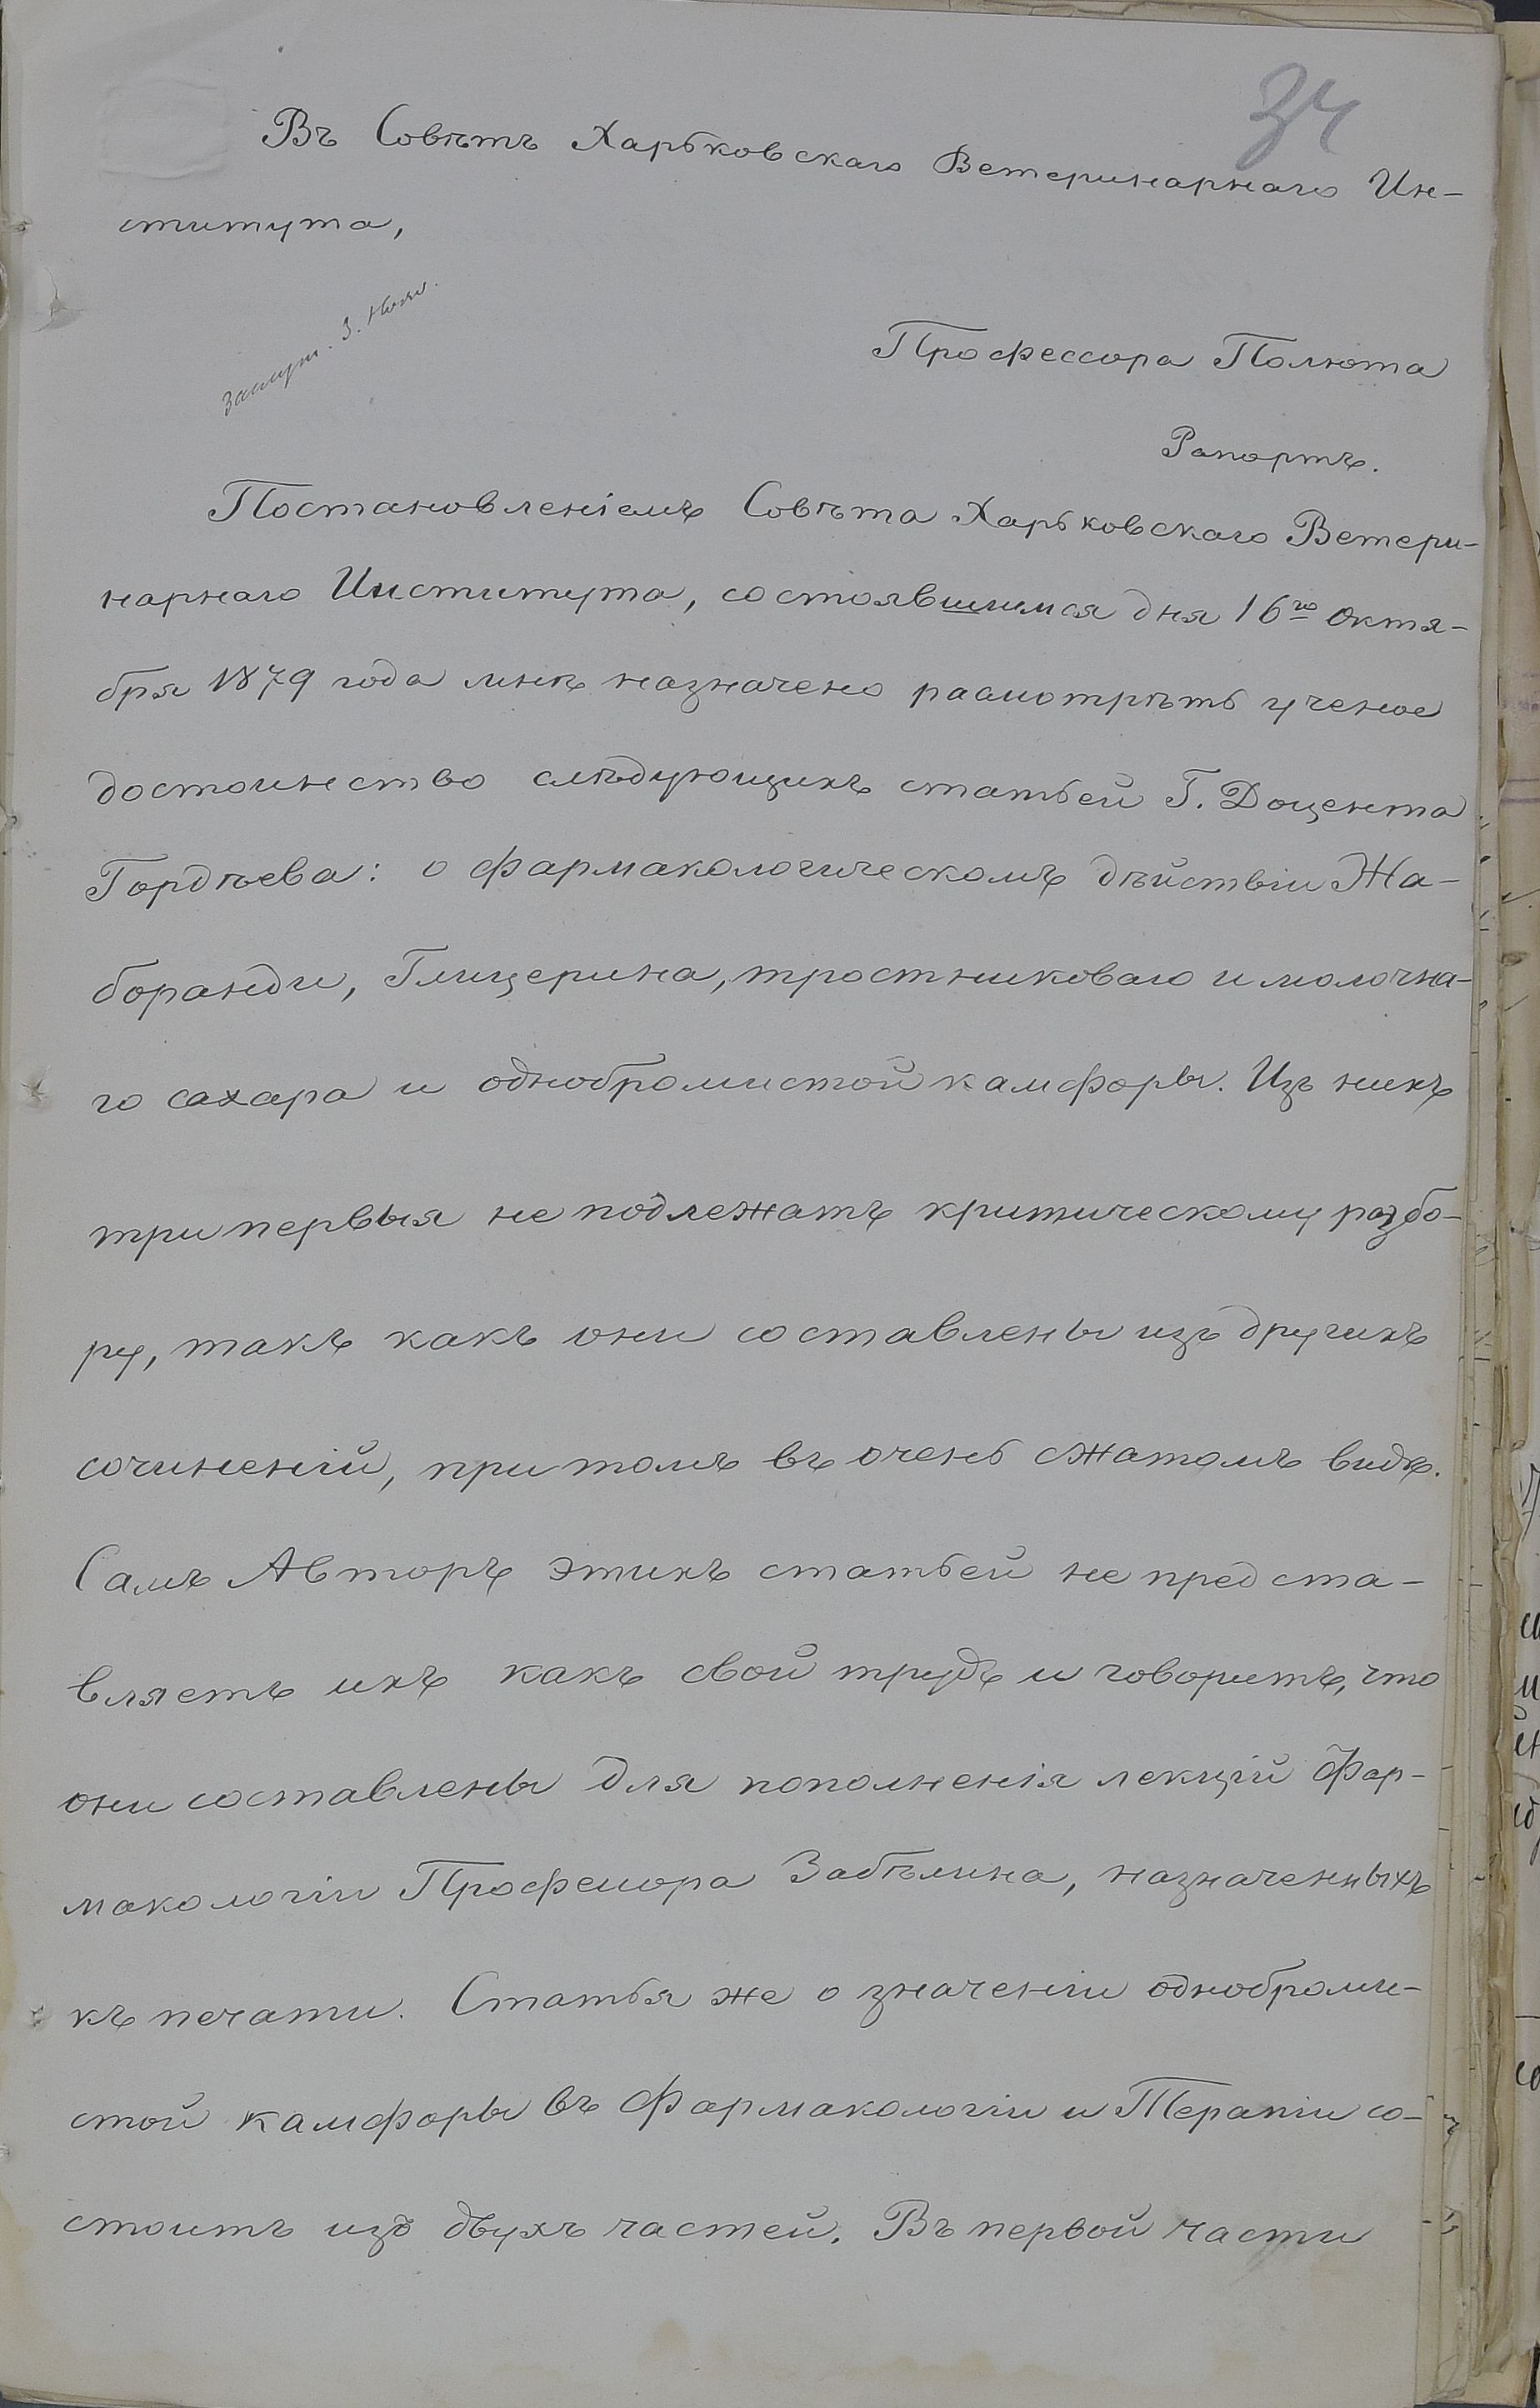 34
Въ Совѣтъ Харьковскаго Ветеринарнаго Ин-
ститута,
Заслуш. 3. Нояб.
Профессора Полюта
Рапортъ.
Постановленіемъ Совѣта Харьковскаго Ветери-
нарнаго Института, состоявшимся дня 16го Октя-
бря 1879 года мнѣ назначено расмотрѣть ученое
достоинство слѣдующихъ статьей Г. Доцента
Гордѣева: о фармакологическомъ дѣйствіи Жа-
боранди, Глицерина, тростниковаго и молочна-
го сахара и однобромистой камфоры. Изъ нихъ
три первыя не подлежатъ критическому разбо-
ру, такъ какъ они составлены изъ другихъ
сочиненій, притомъ въ очень сжатомъ видѣ.
Самъ Авторъ этихъ статьей не предста-
вляетъ ихъ какъ свой трудъ и говоритъ, что
они составлены для пополненія лекцій Фар-
макологіи Професора Забѣлина, назначенныхъ
къ печати. Статья же о значеніи однобромис-
той камфоры въ Фармакологіи и Терапіи со-
стоитъ изъ двухъ частей. Въ первой части